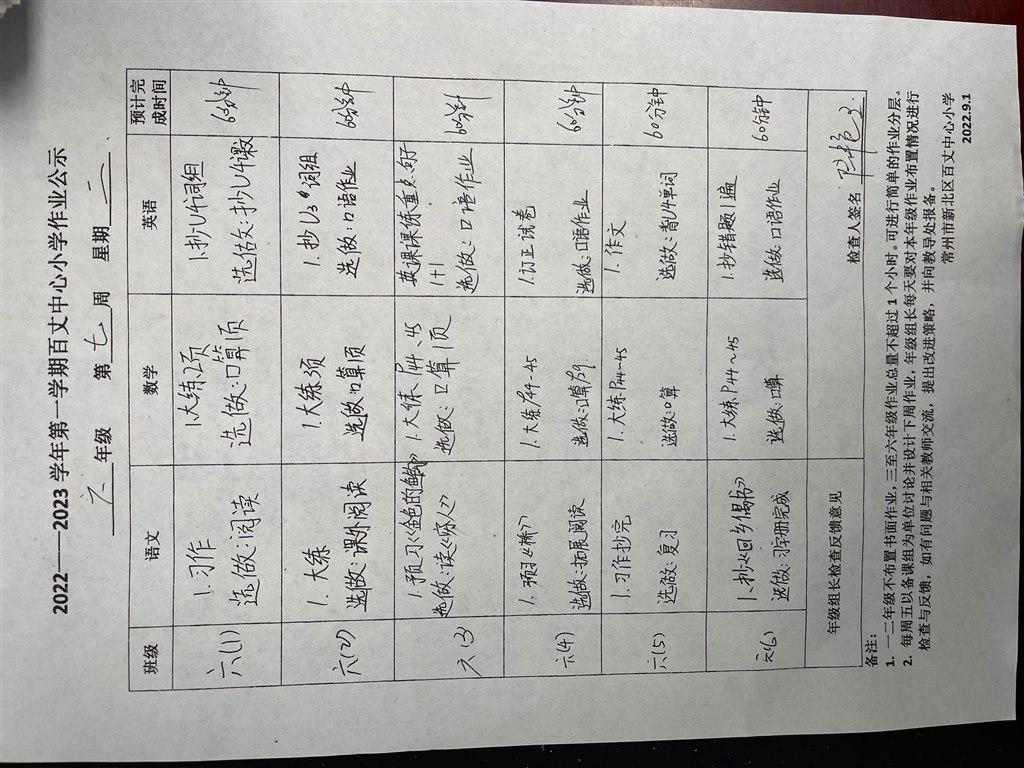 2022——2023学年第一学期百丈中心小学作业公示
六 年级 第 七 周 星期 二
班级 语文 数学 英语 预计完成时间
六(1) 1.习作 1.大练2页 1.抄U4词组 60分钟
选做:阅读 选做:口算1页 选做:抄U4课数
六(2) 1.大练 1.大练2页 1.抄U3词组 60分钟
选做:课外阅读 选做:口算1页 选做:口语作业
六(3) 1.预习《金色的鱼钩》 1.大练P44、45 英课课练重点句子 60分钟
1+1
选做:读《 》 选做:口算1页 选做:口语作业
六(4) 1.预习《桥》 1.大练P44-45 1.订正试卷 60分钟
选做:拓展阅读 选做:口算P29 选做:口语作业
六(5) 1.习作抄完 1.大练P44-45 1.作文 60分钟
选做:复习 选做:口算 选做:背U4单词
六(6) 1.抄《回乡偶书》 1.大练P44~45 1.抄错题1遍 60分钟
选做:习字册完成 选做:口算 选做:口语作业
年级组长检查反馈意见 检查人签名
备注:
1. 一二年级不布置书面作业,三至六年级作业总量不超过1个小时。可进行简单的作业分层。
2. 每周五以备课组为单位讨论并设计下周作业,年级组长每天要对本年级作业布置情况进行
检查与反馈,如有问题与相关教师交流,提出改进策略,并向教导处报备。
常州市新北区百丈中心小学
2022.9.1